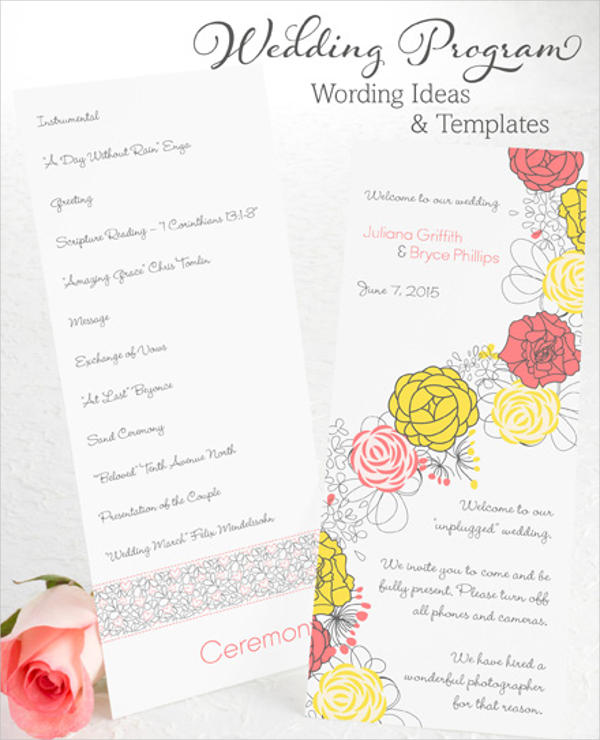 Wedding Program
Wording Ideas
& Templates
Instrumental
"A Day Without Rain" Enya
Greeting
Scripture Reading – "1 Corinthians 13:1-8"
"Amazing Grace" Chris Tomlin
Message
Exchange of Vows
"At Last" Beyonce
Sand Ceremony
"Beloved" Tenth Avenue North
Presentation of the Couple
"Wedding March" Felix Mendelssohn
Ceremon
Welcome to our wedding
Juliana Griffith
& Bryce Phillips
June 7, 2015
Welcome to our
"unplugged" wedding.
We invite you to come and be
fully present. Please turn off
all phones and cameras.
We have hired a
wonderful photographer
for that reason.